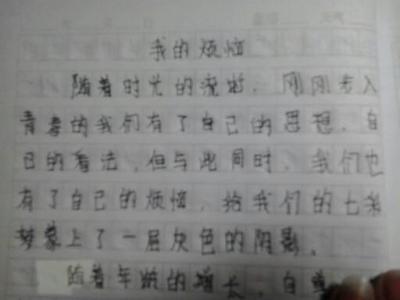 我的烦恼
随着时光的流逝，刚刚步入
青春的我们有了自己的思想，自
己的看法，但与此同时，我们也
有了自己的烦恼，给我们的七彩
梦蒙上了一层灰色的阴影。
随着年龄的增长，自尊